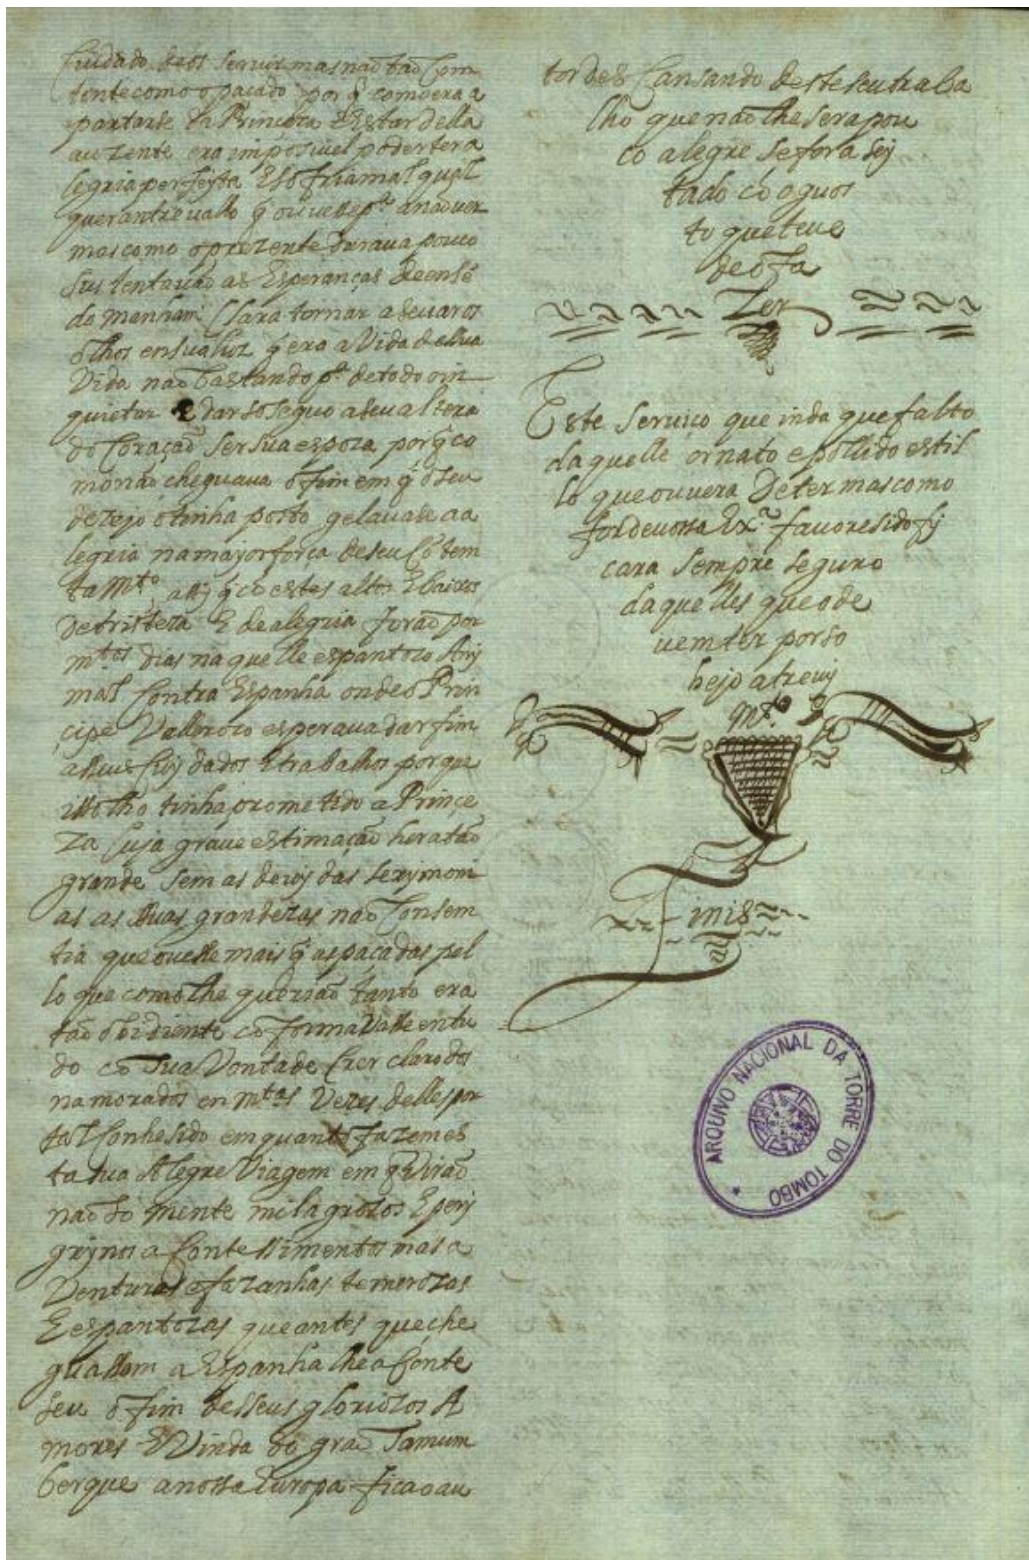 Cuidado de os servir mas não tão Com
tente como o paçado por q̃ como era a
partarse da Princeza E Estar della
auzente era impossiuel poder ter a
legria perfeyta E so friamal qual
quer antreuallo q̃ ouuese p.ª anão uer
mas como o prezente duraua pouco
sustentauão as Esperanças de ensẽ
do manham Clara tornar a seuar os
olhos ensua lus q̃ era a Vida de sua
Vida não bastando p.ª de todo o in
quietar E dar soseguo a seu altera
do Coração ser sua espoza porq̃ co
mo não cheguaua o fim em q̃ o seu
dezejo o tinha posto gelauase a a
legria na major força de seu Cõtem
tam.to asy q̃ cõ estes altos E baixos
de tristeza E de alegria forão por
m.tos dias na quelle espantozo Any
mal Contra Espanha onde o Prin
çipe Vallerozo esperaua dar fim
a seus Cuydados E trabalhos porque
isso lho tinha prometido a Prinçe
za Cuja graue estimação hera tão
grande sem as deuydas serymoni
as as suas grandezas não Consem
tia que ouuesse mais q̃ as paçadas pel
lo que como lhe querião tanto era
tão obidiente cõ forma Vasse en tu
do cõ sua Vontade Crer claro dos
namorados en m.tas Vezes delles por
tal Conhesido em quanto fazem es
ta sua Alegre Viagem em q̃ Virão
não só mente milagrozos E pery
grynos a Contessimentos mas a
Venturas e fazanhas temerozas
E espantozas que antes que che
guassem a Espanha lhe a Conte
seu o fim de sseus gloriozos A
mores E Vinda do grão Tamum
berque a nossa Europa fica o au
tor des Cansando deste seu traba
lho que não lhe sera pou
co alegre se fora sej
tado cõ o guos
to que teue
de o fa
zer
Este seruiço que inda que falto
daquelle ornato e pollido estil
lo que ouuera De ter mas como
for de uossa Ex.ª fauoresido fy
cara sempre seguro
daquelles que o de
uem ter por so
bejo atreuy
m.to
Finis
ARQUIVO NACIONAL DA TORRE DO TOMBO